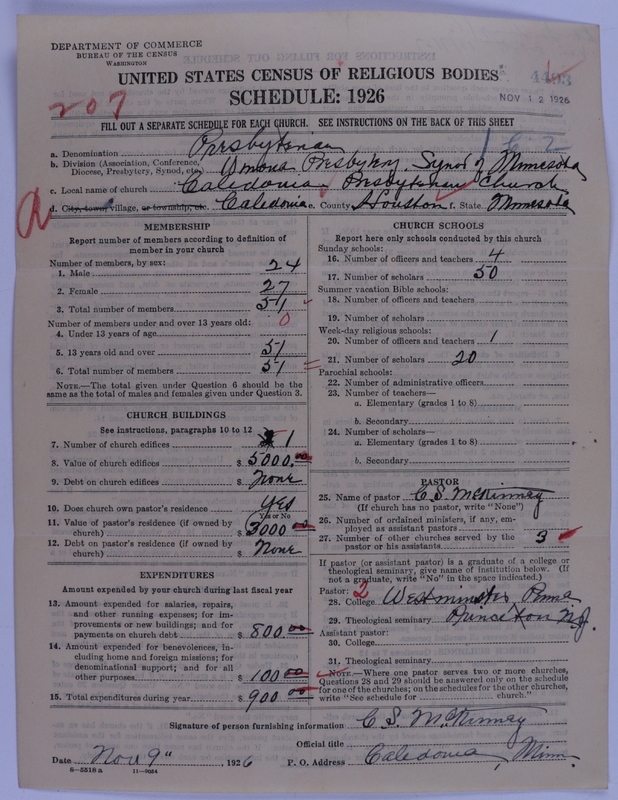 DEPARTMENT OF COMMERCE
BUREAU OF THE CENSUS
WASHINGTON
UNITED STATES CENSUS OF RELIGIOUS BODIES
SCHEDULE: 1926
NOV 12 1926
207
FILL OUT A SEPARATE SCHEDULE FOR EACH CHURCH. SEE INSTRUCTIONS ON THE BACK OF THIS SHEET
a. Denomination Presbyterian
b. Division (Association, Conference, Diocese, Presbytery, Synod, etc.) Winona Presbytery Synod of Minnesota
c. Local name of church Caledonia Presbyterian Church
d. City, town, village, or township, etc. Caledonia e. County Houston f. State Minnesota
MEMBERSHIP
Report number of members according to definition of
member in your church
Number of members, by sex:
1. Male 24
2. Female 27
3. Total number of members 51
Number of members under and over 13 years old:
4. Under 13 years of age 0
5. 13 years old and over 51
6. Total number of members 51
NOTE.—The total given under Question 6 should be the
same as the total of males and females given under Question 3.
CHURCH BUILDINGS
See instructions, paragraphs 10 to 12
7. Number of church edifices 1
8. Value of church edifices $ 5000.00
9. Debt on church edifices $ None
10. Does church own pastor's residence Yes
Yes or No
11. Value of pastor's residence (if owned by
church) $ 3000 00
12. Debt on pastor's residence (if owned by
church) $ None
EXPENDITURES
Amount expended by your church during last fiscal year
13. Amount expended for salaries, repairs,
and other running expenses; for im-
provements or new buildings; and for
payments on church debt $ 800.00
14. Amount expended for benevolences, in-
cluding home and foreign missions; for
denominational support; and for all
other purposes $ 100 00
15. Total expenditures during year $ 900 00
CHURCH SCHOOLS
Report here only schools conducted by this church
Sunday schools:
16. Number of officers and teachers 4
17. Number of scholars 50
Summer vacation Bible schools:
18. Number of officers and teachers
19. Number of scholars
Week-day religious schools:
20. Number of officers and teachers 1
21. Number of scholars 20
Parochial schools:
22. Number of administrative officers
23. Number of teachers—
a. Elementary (grades 1 to 8)
b. Secondary
24. Number of scholars—
a. Elementary (grades 1 to 8)
b. Secondary
PASTOR
25. Name of pastor C. S. McKinney
(If church has no pastor, write "None")
26. Number of ordained ministers, if any, em-
ployed as assistant pastors
27. Number of other churches served by the
pastor or his assistants 3
If pastor (or assistant pastor) is a graduate of a college or
theological seminary, give name of institution below. (If
not a graduate, write "No" in the space indicated.)
Pastor: 2
28. College Westminster Penna
29. Theological seminary Princeton N.J.
Assistant pastor:
30. College
31. Theological seminary
NOTE.—Where one pastor serves two or more churches,
Questions 28 and 29 should be answered only on the schedule
for one of the churches; on the schedules for the other churches,
write "See schedule for church."
Signature of person furnishing information C. S. McKinney
Official title
Date Nov 9" 1926 P. O. Address Caledonia, Minn.
8-5518 a 11-9034